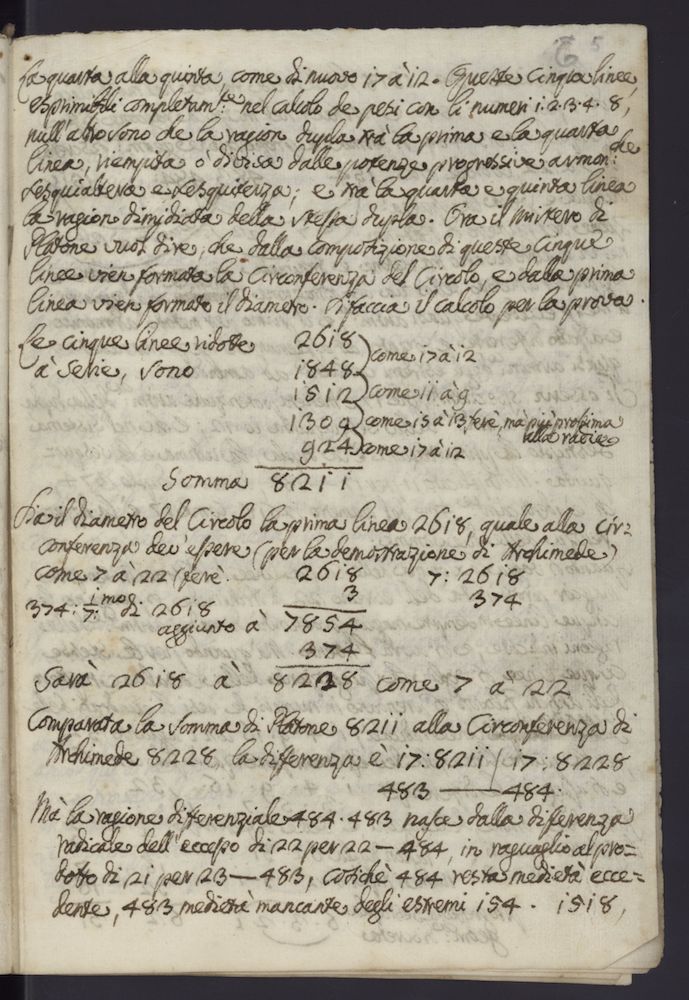 5
La quarta alla quinta, come di nuovo 17 à 12. Queste cinque linee,
esprimibili completam:te nel calcolo de pesi con li numeri 1. 2. 3. 4. 8,
null'altro sono che la ragion dupla trà la prima e la quarta
linea, riempita o divisa dalle potenze progressive armon:che
sesquialtera e sesquiterza; e trà la quarta e quinta linea
la ragion dimidiata della stessa dupla. Ora il mistero di
Platone vuol dire, che dalla composizione di queste cinque
linee vien formata la Circonferenza del Circolo, e dalla prima
linea vien formato il diametro. Si faccia il calcolo per la prova.
Le cinque linee ridotte 2618
come 17 à 12
à serie, sono 1848
come 11 à 9
1512
come 15 à 13 ferè, mà più prossima
alla radice
1309
924 come 17 à 12
Somma 8211
Sia il diametro del Circolo la prima linea 2618, quale alla cir=
conferenza dev'essere (per la demostrazione di Archimede)
come 7 à 22 ferè. 2618 7: 2618
374: 1/7 imo di 2618 3 374
aggiunto à 7854
374
Sarà 2618 à 8228 come 7 a 22
Comparata la somma di Platone 8211 alla Circonferenza di
Archimede 8228 la differenza è 17: 8211 / 17: 8228
483 — 484.
Mà la ragione differenziale 484. 483 nasce dalla differenza
radicale dell'eccesso di 22 per 22 — 484, in raguaglio al pro=
dotto di 21 per 23 — 483, cosichè 484 resta medietà ecce=
dente, 483 medietà mancante degli estremi 154. 1518,